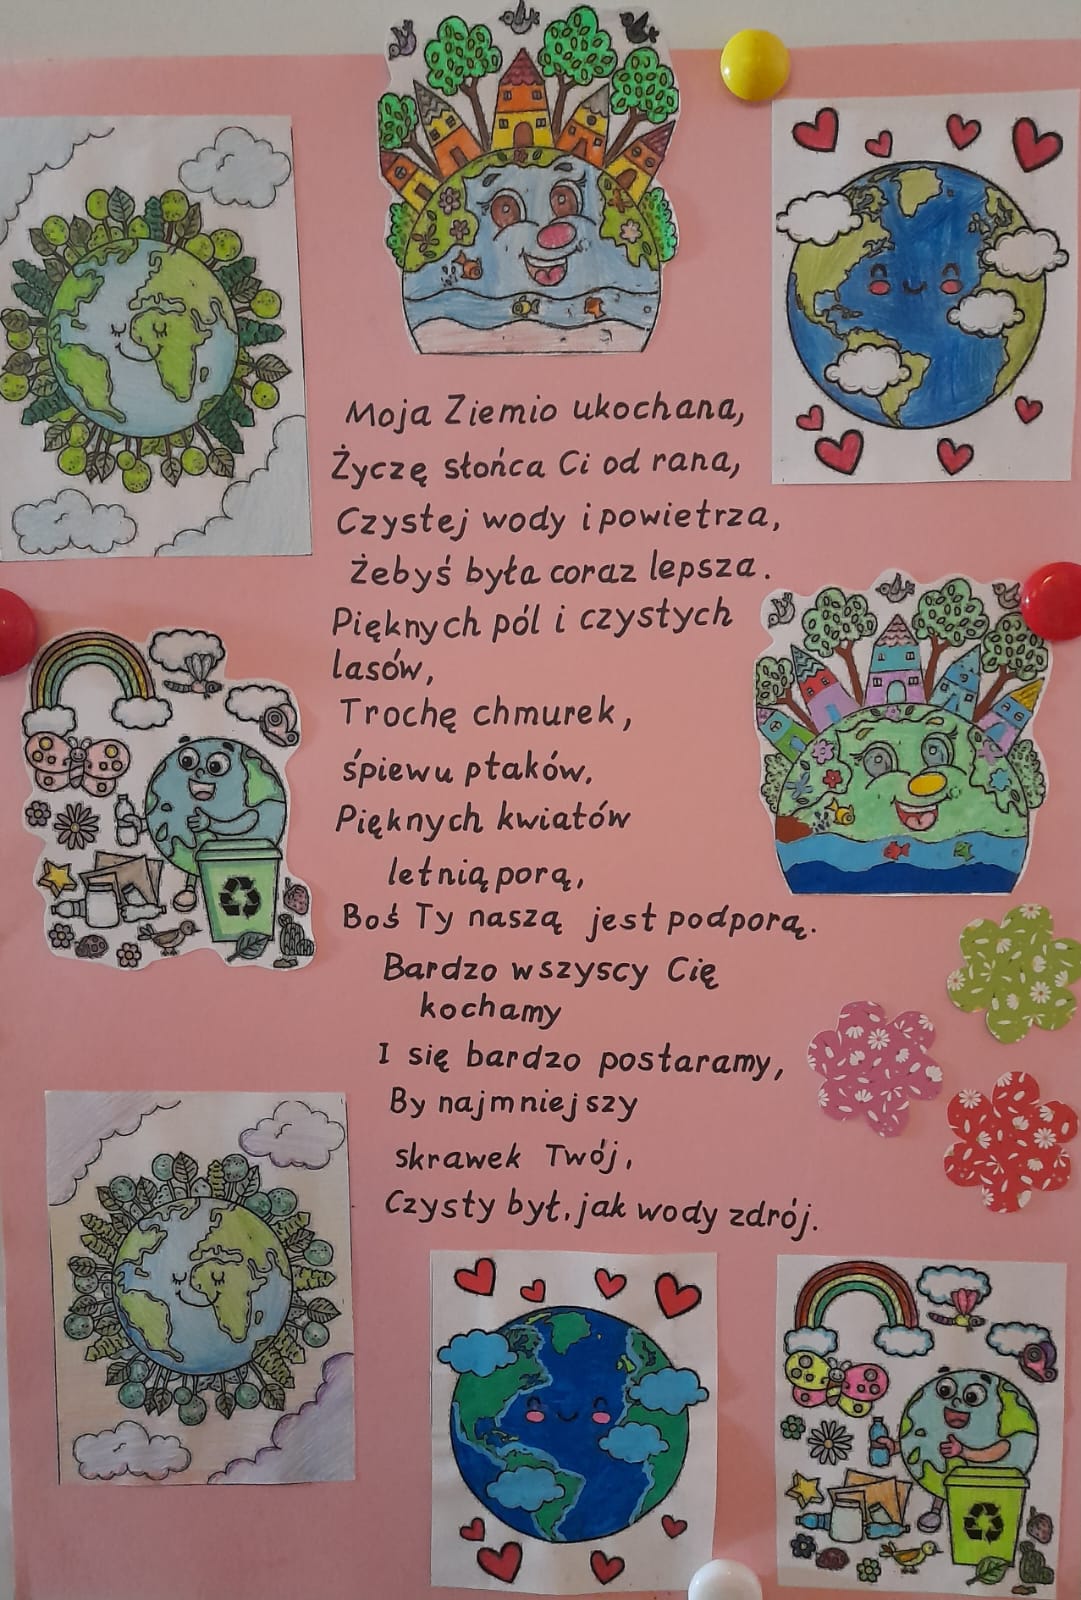 Moja Ziemio ukochana,
Życzę słońca Ci od rana,
Czystej wody i powietrza,
Żebyś była coraz lepsza.
Pięknych pól i czystych
lasów,
Trochę chmurek,
śpiewu ptaków.
Pięknych kwiatów
letnią porą,
Boś Ty naszą jest podporą.
Bardzo wszyscy Cię
kochamy
I się bardzo postaramy,
By najmniejszy
skrawek Twój,
Czysty był, jak wody zdrój.